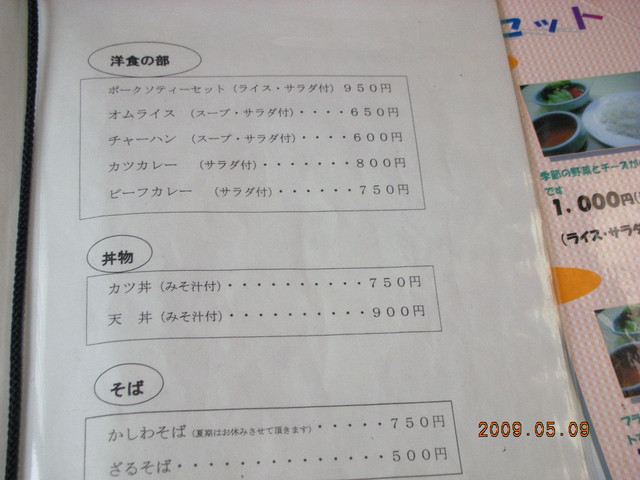 洋食の部
ポークソティーセット(ライス・サラダ付)950円
オムライス (スープ・サラダ付)・・・・650円
チャーハン (スープ・サラダ付)・・・・600円
カツカレー (サラダ付)・・・・・・・800円
ビーフカレー (サラダ付)・・・・・・750円
丼物
カツ丼(みそ汁付)・・・・・・・・・・750円
天 丼(みそ汁付)・・・・・・・・・・900円
そば
かしわそば(夏期はお休みさせて頂きます)・・・・・750円
ざるそば・・・・・・・・・・・・・500円
セット
季節の野菜とチーズが
です
1,000円
(ライス・サラダ
フラ
2009.05.09